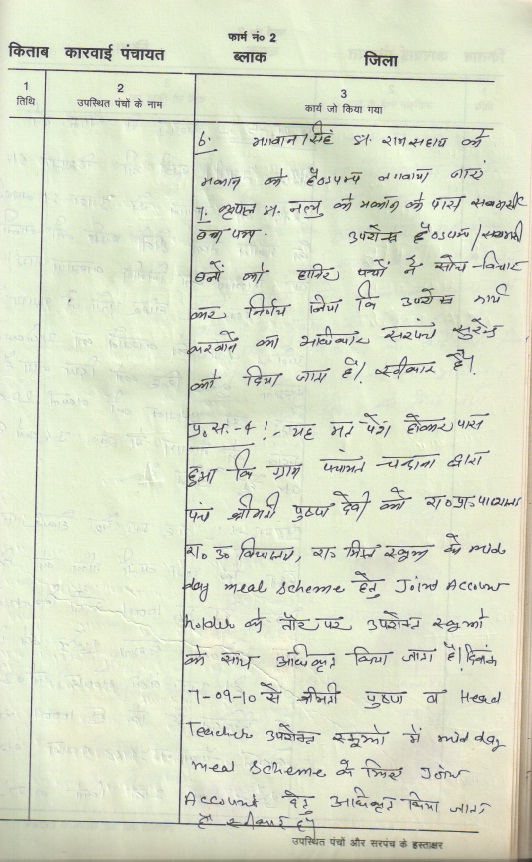 फार्म नं० 2
किताब कारवाई पंचायत ब्लाक जिला
1 2 3
तिथि उपस्थित पंचों के नाम कार्य जो किया गया
6. भगवान सिंह S/o रामसहाय के
मकान के हैंडपम्प लगवाया जाये
7. के मकान के पास सबमर्सीबल
उपरोक्त हैंडपम्प/सबमर्सी
को हाजिर पंचों ने सोच-विचार
कर निर्णय लिया कि उपरोक्त कार्य
करवाने का अधिकार सरपंच सुरेन्द्र
को दिया जाता है। स्वीकार है।
प्र.स.-4:- यह मत पेश होकर पास
हुआ कि ग्राम पंचायत चन्दाना द्वारा
पंच श्रीमती पुष्पा देवी को रा०प्रा०पाठशाला
रा० उ० विद्यालय, रा० स्कूल के mid
day meal scheme हेतु Joint Account
holder के तौर पर उपरोक्त स्कूलो
के साथ अधिकृत किया जाता है। दिनांक
7-09-10 से श्रीमती पुष्पा व Head
Teacher उपरोक्त स्कूलो में mid day
meal scheme के लिए Joint
Account हेतु अधिकृत किया जाता
है स्वीकार है।
उपस्थित पंचों और सरपंच के हस्ताक्षर